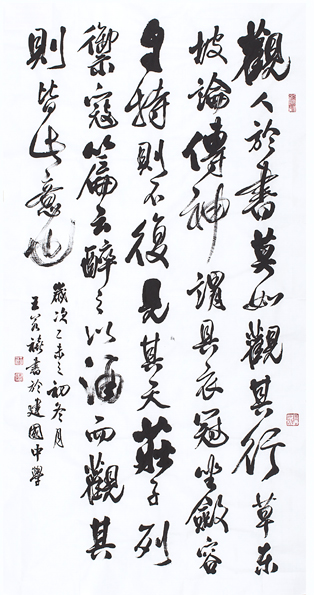 觀人於書莫如觀其行草東
坡論傳神謂具衣冠坐斂容
自持則不復見其天莊子列
禦寇篇云醉之以酒而觀其
則皆此意也
歲次乙未之初冬月
王書於建國中學